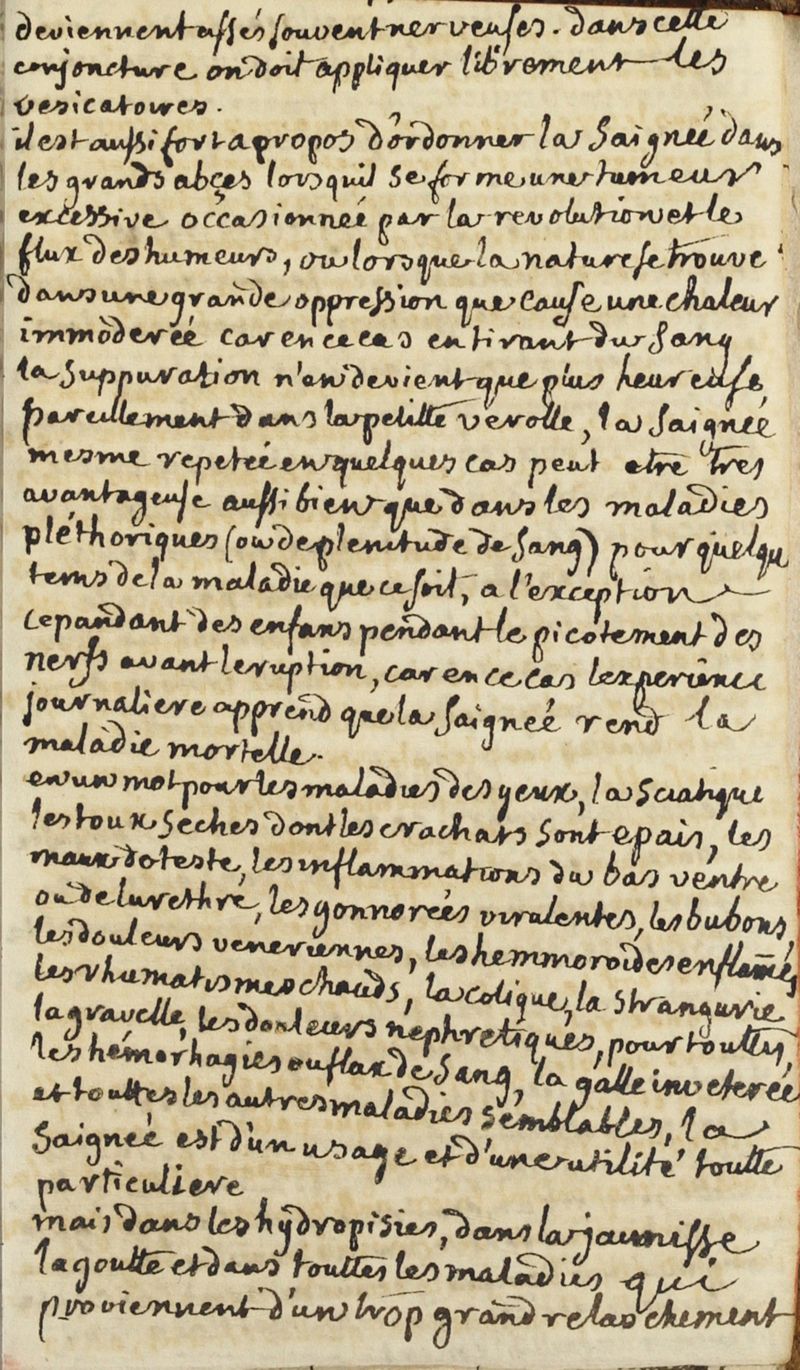 deviennent assés souvent nerveuses. dans cette
conjoncture on doit appliquer librement les
vesicatoires.
il est aussi fort a propos d'ordonner la saigneé dans
les grands abçes lorsquil se forme une tumeur
excessive occasionneé par la revolution et le
flux des humeurs, ou lorsque la nature se trouve
dans une grande oppression que cause une chaleur
immodereé car en ce cas en tirant du sang
la suppuration n'en devient que plus heureuse,
pareillement dans la petitte verolle, la saigneé
mesme repeteé en quelques cas peut etre tres
avantageuse aussi bien que dans les maladies
pléthoriques (ou de plenitude de sang) pour quelque
tems de la maladie que ce soit, a l'exception
cepandant des enfans pendant le picotement des
nerfs avant leruption, car en ce cas lexperience
journaliere apprend que la saigneé rend la
maladie mortelle.
en un mot pour les maladies des yeux, la sciatique
les toux seches dont les crachats sont epais, les
maux de teste, les inflammations du bas ventre
ou de lurethre, les gonnoreés virulentes, les bubons,
les douleurs veneriennes, les hemmoroides enflamés,
les rhumatismes chauds, la colique, la strangurie
la gravelle, les douleurs néphretiques, pour touttes
les hémorhagies ou flux de sang, la galle inveterée
et touttes les autres maladies semblables, la
saigneé est d'un usage et d'une utilité toutte
particuliere
mais dans les hydropisies, dans la jaunisse
la goutte et dans touttes les maladies qui
proviennent d'un trop grand relaschement